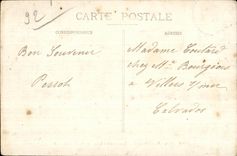 92
CARTE POSTALE
CORRESPONDANCE
ADRESSE
Bon Souvenir
Madame Coutard
chez Mr Bourgeois
à Villers s/mer
Calvados